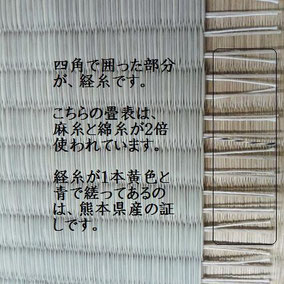 四角で囲った部分
が、経糸です。
こちらの畳表は、
麻糸と綿糸が2倍
使われています。
経糸が1本黄色と
青で縒ってあるの
は、熊本県産の証
しです。